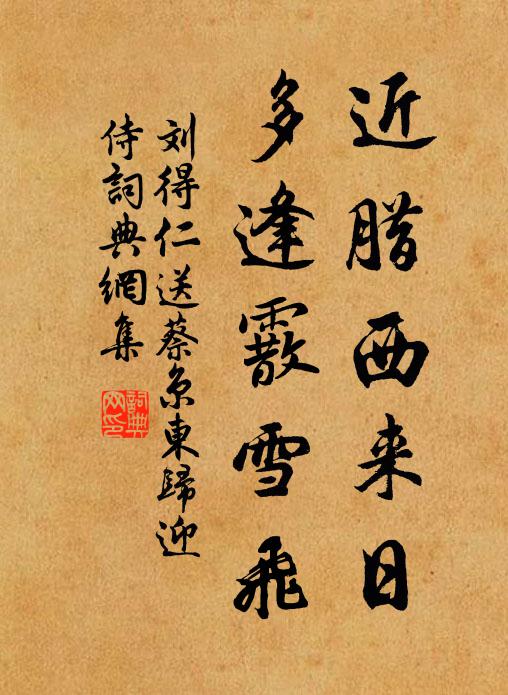 近腊西来日
多逢霰雪飛
刘得仁送蔡京東歸迎
侍詞典網集
詞典网印